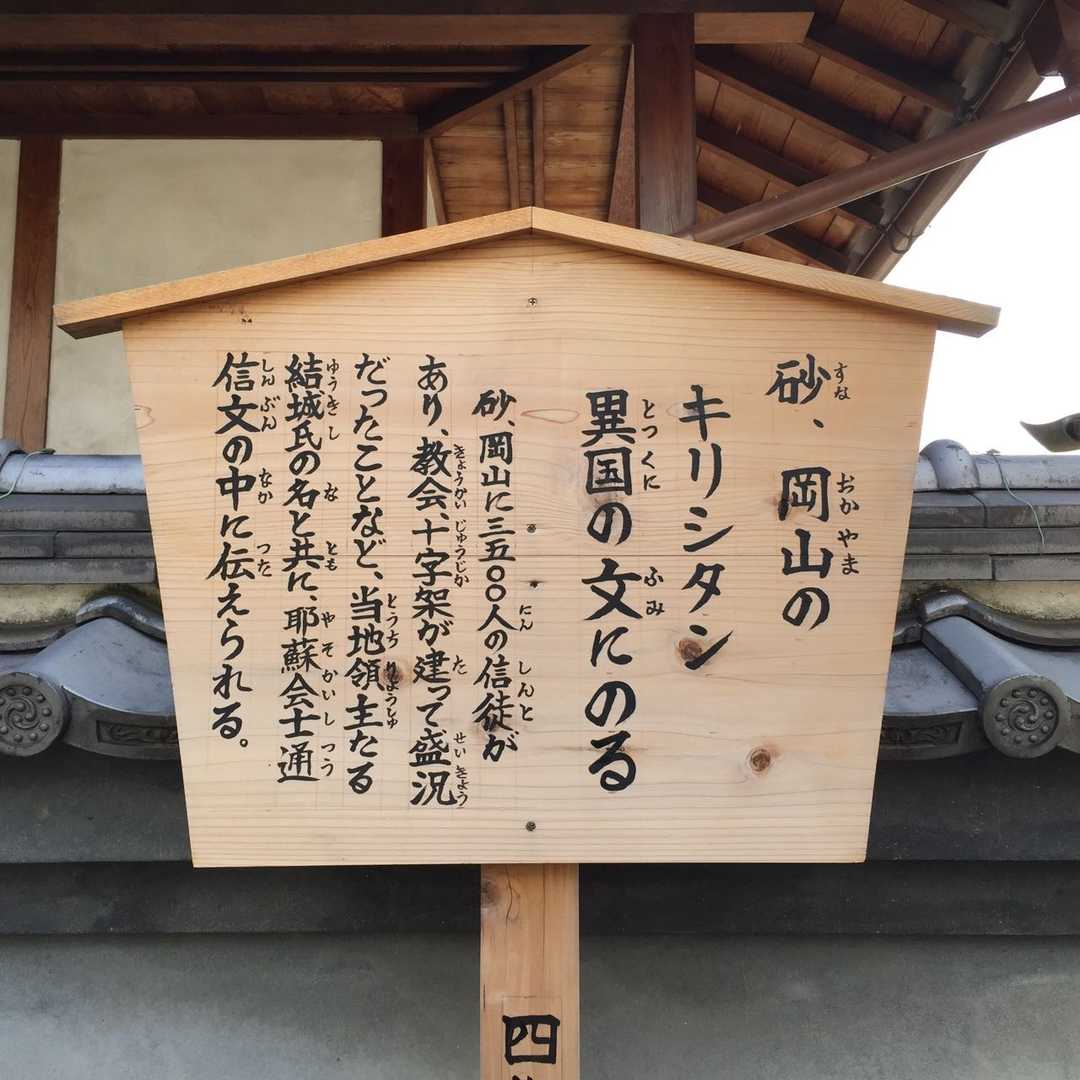 砂、岡山の
キリシタン
異国の文にのる
砂、岡山に三五〇〇人の信徒が
あり、教会、十字架が建って盛況
だったことなど、当地領主たる
結城氏の名と共に、耶蘇会士通
信文の中に伝えられる。
四